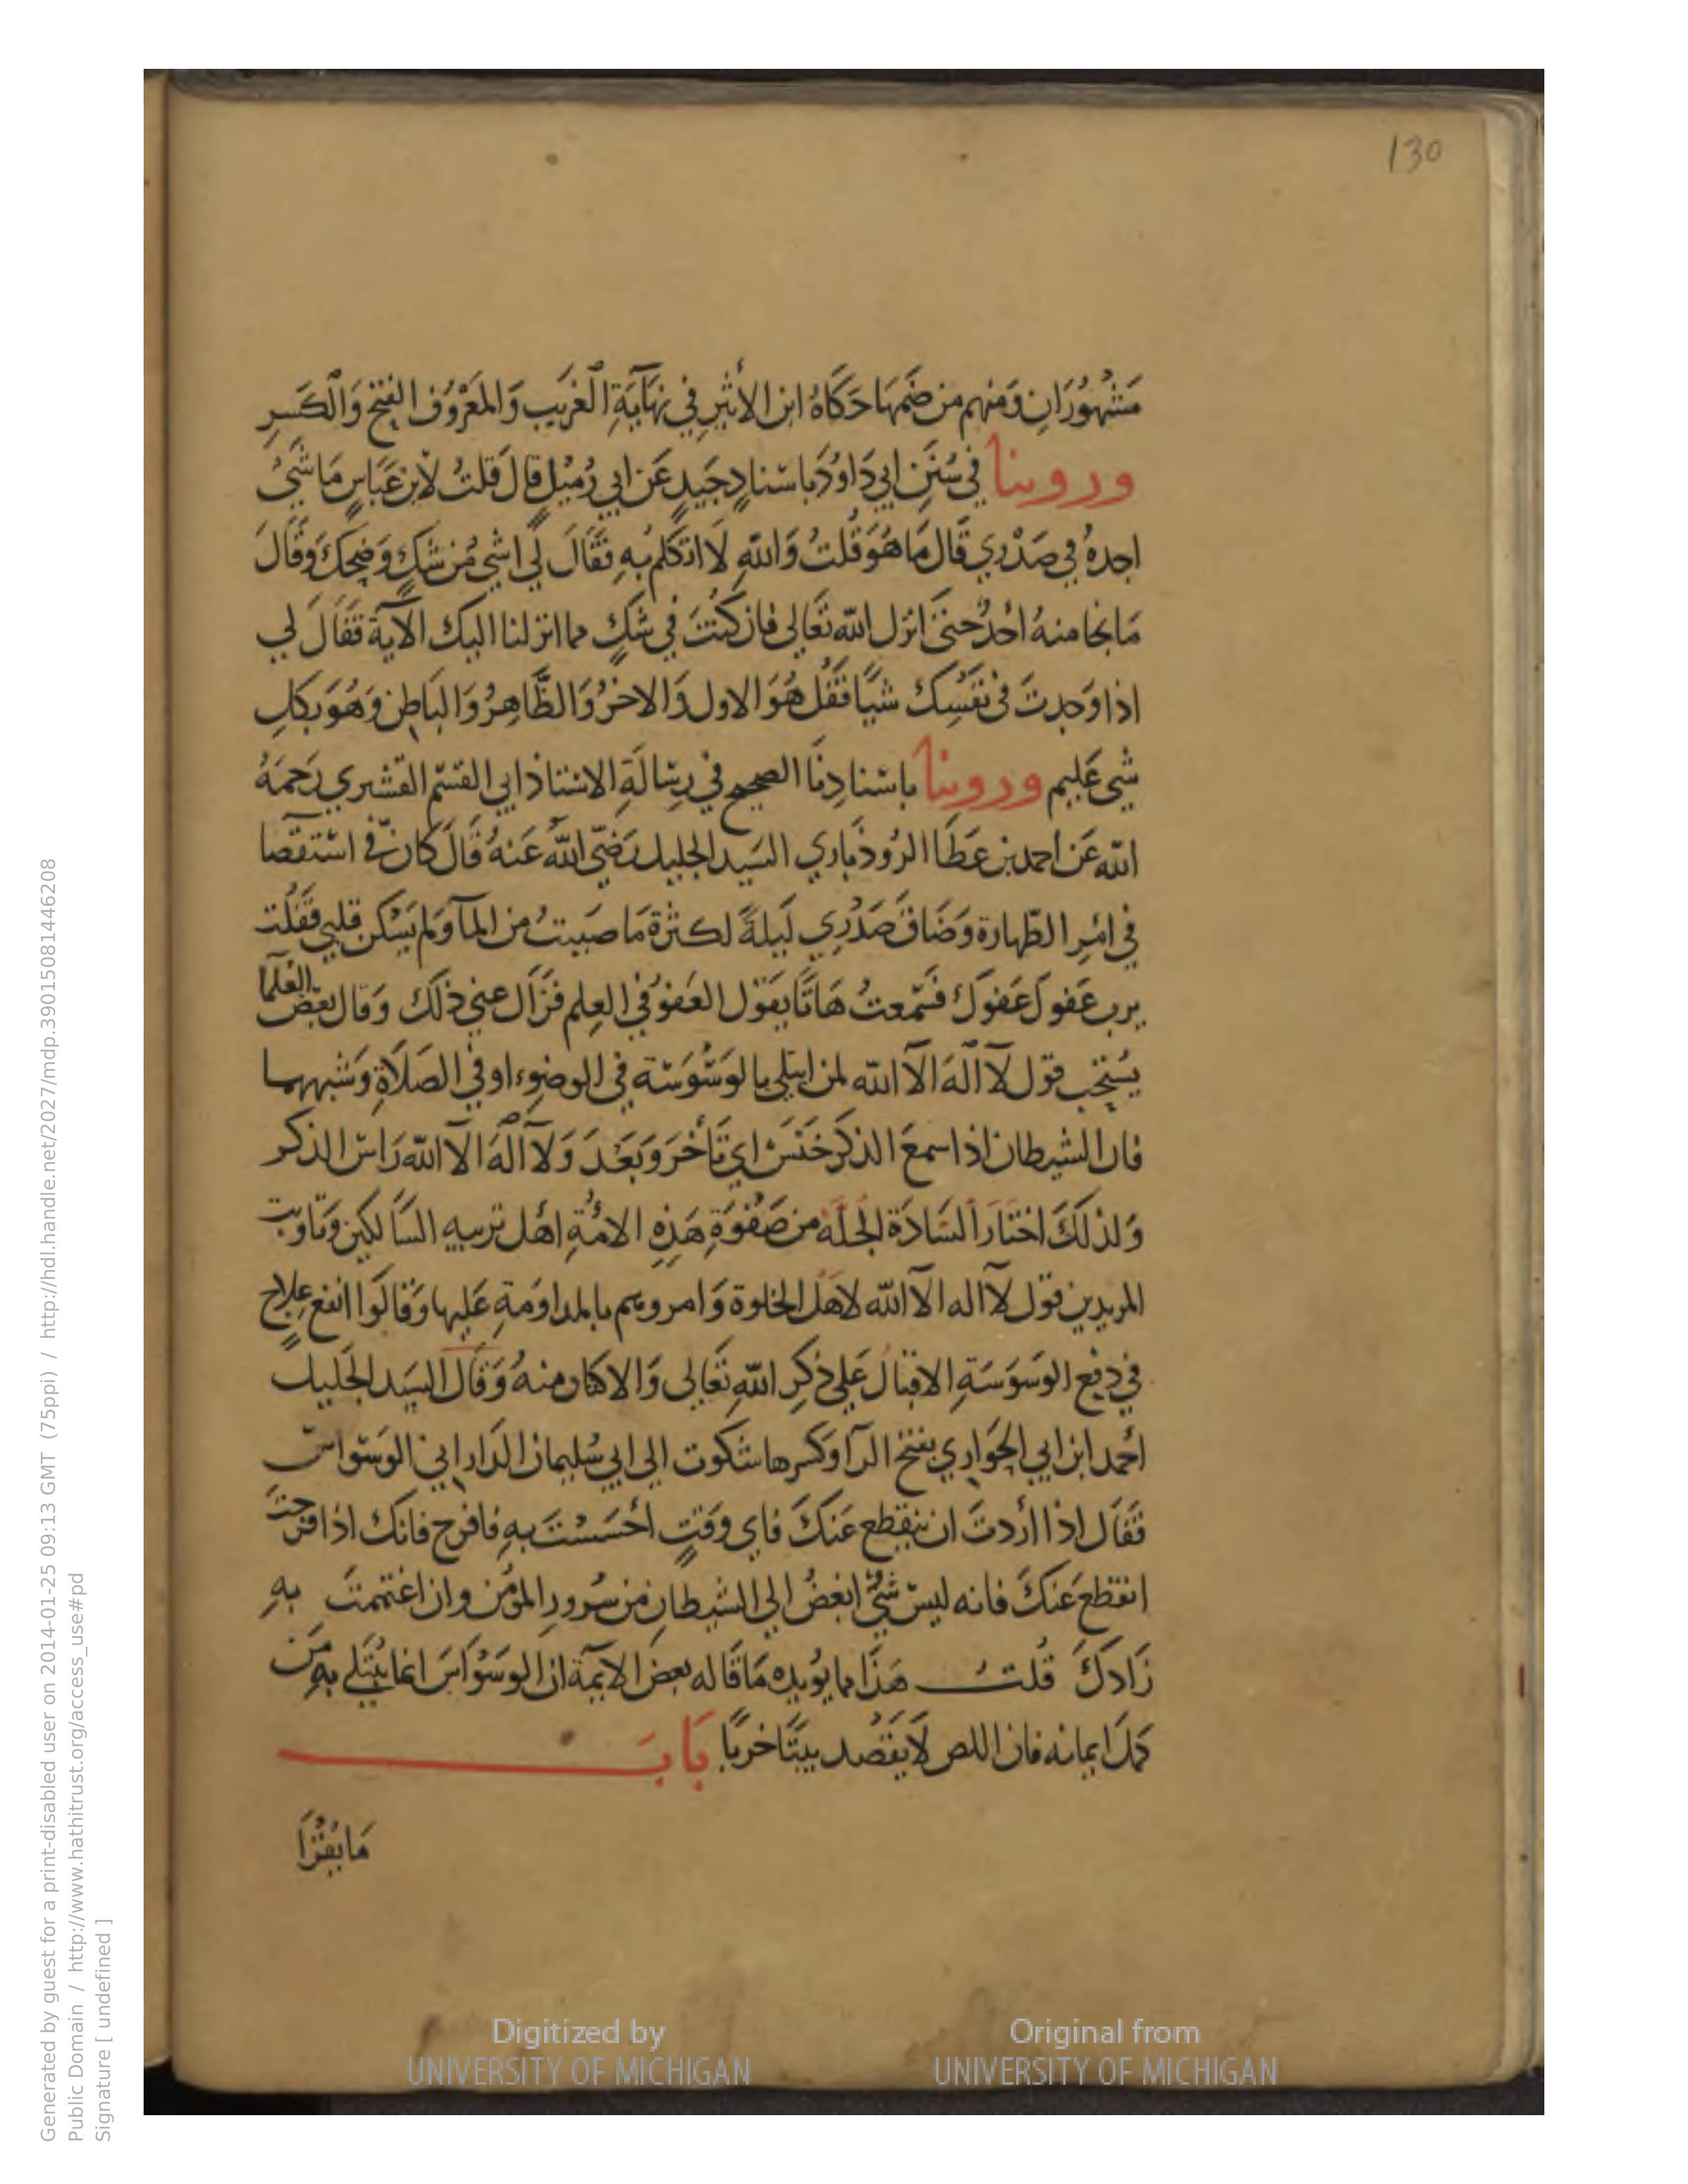 130
مَشْهُورَانِ وَمنهم من ضَمَهَا حَكَاهُ ابن الأثيرِ في نِهَآيَةِ الْغَرِيب وَالمَعْرُوف الفتح وَالْكَسرِ
وروينا في سُنَنِ ابي دَاوُدَ باسناد جَيدٍ عَن ابي زُمَيْلٍ قالَ قلتُ لاْبنِ عَبَاسٍ مَا شَيُ
اجدهُ في صَدْرِي قَال مَا هُوَ قُلتُ وَاللهِ لَا اتكلمُ بهِ فَقَالَ لي اشي مُن شكٍ وَضِحكَ وَقَالَ
مَا نجا منهُ أحَدٌ حتَى انزل الله تعَالى فان كنْتَ في شكٍ مما انزلنا اليك الآية فَقَالَ لي
اذا وَجدتَ في نفْسِكَ شيًا فَقُل هُوَ الاول وَالاخرُ وَالظَّاهِرُ وَالبَاطن وَهُوَ بكلِ
شي عَليم وروينا باسنادِنَا الصحيح في رِسَالَةِ الاستاذ ابي القسم القشري رَحمَهُ
الله عَن احمد بن عَطَا الروُذَباري السَيد الجليل رَضيَ اللهُ عَنهُ قَالَ كان فيّ استقصا
في امْرِ الطهارة وَضَاقَ صَدْرِي لَيلةً لكثرة مَا صَببتُ من المآ وَلم يَسْكن قلبي فَقُلت
يرب عَفوكَ عَفوكَ فَسَمعتُ هَاتفًا يقَول العَفوُ في العِلم فزَال عني ذلكَ وَقال بَعض العُلَما
يُسْتحب قول لآ الهَ الآ الله لمن ابتلي بالوَسْوَسَة في الوضوء او في الصَلاةِ وَشبههما
فان الشيطان اذا سمعَ الذكر خنَسَ اي تَأَخرَ وَبَعُدَ وَلآ الهَ الآ الله رَاس الذكر
وَلذلكَ اختَارَ السَادَة الجلَّة من صَفْوَةِ هَذِهِ الامُةِ اهْل تربيه السَالكين وَتاديب
المريدين قول لآ اله الآ الله لاهَل الخلوة وَامروهم بالمداوَمَةِ عَليها وَقالوا انفع علاجٍ
في دفع الوَسوَسَةِ الاقبالُ عَلي ذكرِ اللهِ تعَالى وَالاكثار منهُ وَقَال السَيد الجَليل
أحمد ابن ابي الحوَاري بفتح الرآ وَكسرها شكوت الى ابي سُليمان الدَاراني الوَسوَاس
فَقَال اذا أردتَ ان ينقطع عَنكَ فاي وَقتٍ أحسَسْتَ بهِ فافرح فانكَ اذا فرحتَ
انقطع عَنكَ فانه ليس شيٌ ابغضُ الي الشيطان من سُرورِ المؤمن وان اغتممتَ بهِ
زَادكَ قُلتُ هَذا مما يؤيده مَا قَاله بعض الايمَة ان الوَسْوَاسَ انما يُبْتَلي به مَن
كمل ايمانه فان اللص لَا يقصُد بيتًا خربًا بَابَ
مَا يُقْرَأ
Digitized by
UNIVERSITY OF MICHIGAN
Original from
UNIVERSITY OF MICHIGAN
Generated by guest for a print-disabled user on 2014-01-25 09:13 GMT (75ppi) / http://hdl.handle.net/2027/mdp.39015081446208
Public Domain / http://www.hathitrust.org/access_use#pd
Signature [ undefined ]